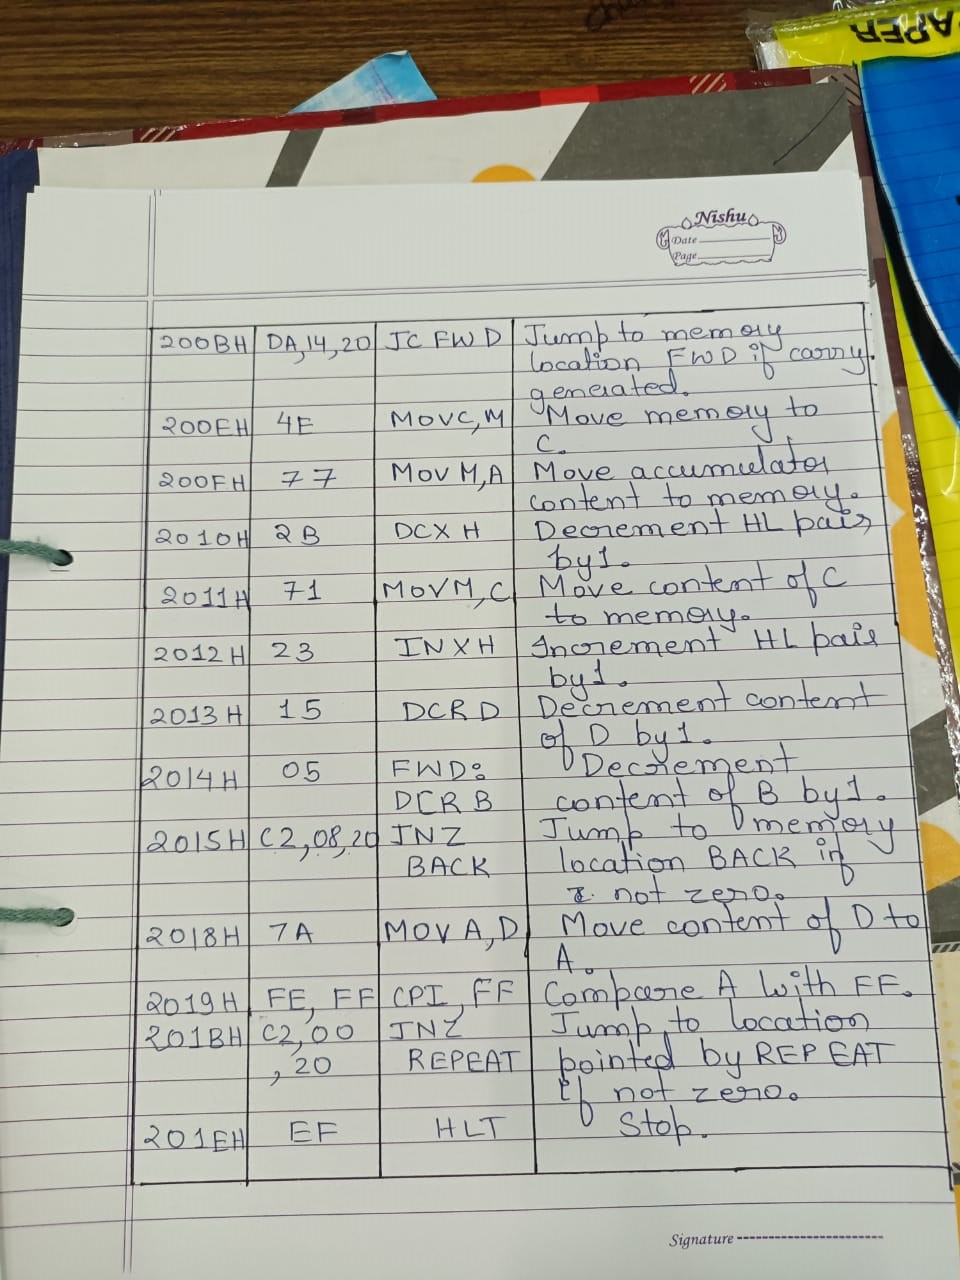 PAPER
Nishu
Date
Page
200BH DA,14,20 JC FWD Jump to memory
location FWD if carry
generated.
200EH 4E MOVC,M Move memory to
C.
200FH 77 MOV M,A Move accumulator
content to memory.
2010H 2B DCX H Decrement HL pair
by1.
2011H 71 MOVM,C Move content of C
to memory.
2012H 23 INXH Increment HL pair
by1.
2013H 15 DCRD Decrement content
of D by1.
2014H 05 FWD: Decrement
DCRB content of B by1.
2015H C2,08,20 JNZ Jump to memory
BACK location BACK if
not zero.
2018H 7A MOV A,D Move content of D to
A.
2019H FE, FF CPI, FF Compare A with FF.
201BH C2,00 JNZ Jump to location
,20 REPEAT pointed by REPEAT
if not zero.
201EH EF HLT Stop.
Signature